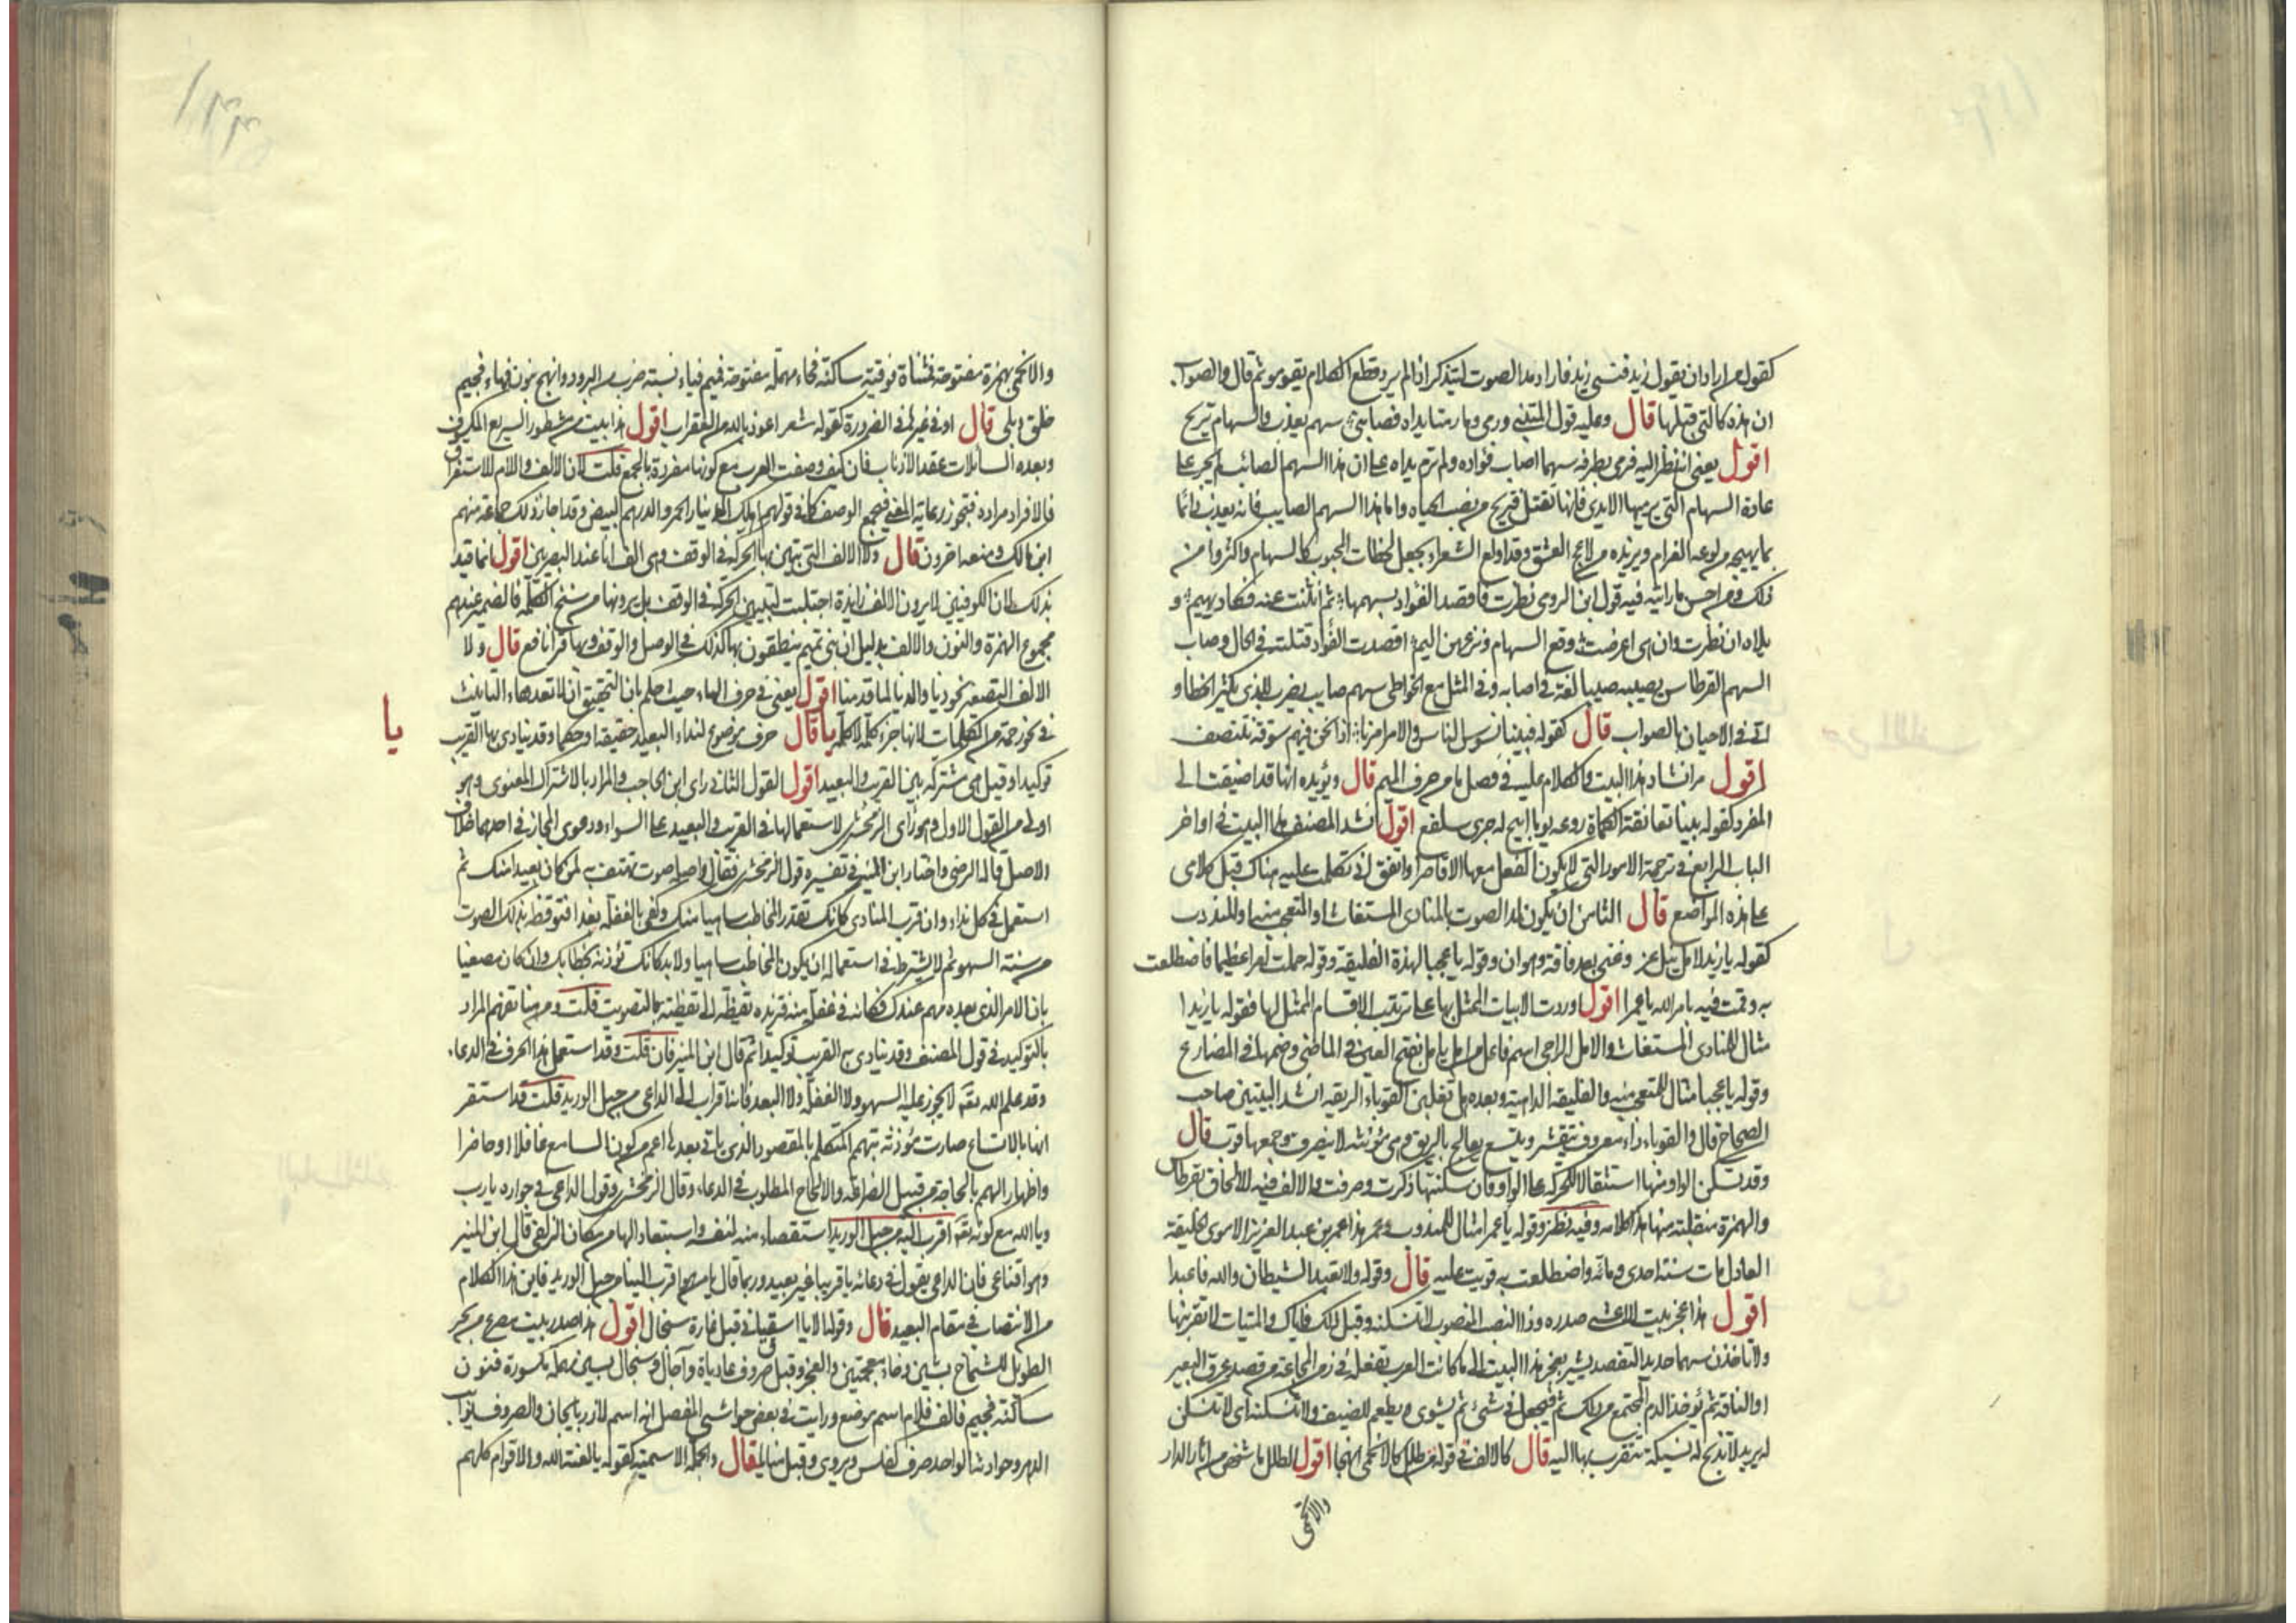 كقول من اراد ان يقول زيد فنسي زيد فاراد مد الصوت ليتذكر اذا لم يرد قطع الكلام يقومو ثم قال والصواب
ان هذه كالتي قبلها قال وعليه قول المتنبي ورمى وما رمتا يداه فصابني سهم يعذب والسهام تريح
اقول يعني انه نظر اليه فرمى بطرفه سهما اصاب فواده ولم ترم يداه على ان هذا السهم الصائب لم يجر على
عادة السهام التي يرميها الايدي فانها تقتل فتريح من نصب الحياه واما هذا السهم الصايب فانه يعذب دائما
بما يهيجه من لوعه الغرام ويزيده من لاعج العشق وقد اولع الشعراء بجعل لحظات المحبوب كالسهام واكثروا من
ذلك ومن احسن ما رايته فيه قول ابن الرومي نظرت فاقصدت الفواد بسهمها ثم انثنت عنه فكاد يهيم و
يلاه ان نظرت وان هي اعرضت وقع السهام ونزعهن اليم اقصدت الفواد قتلته في الحال وصاب
السهم القرطاس يصيبه صيبا لغة في اصابه وفي المثل مع الخواطئ سهم صايب يضرب للذي يكثر الخطا و
ياتي في الاحيان بالصواب قال كقوله فبينا نسوس الناس والامر امرنا اذا نحن فيهم سوقة نتنصف
اقول مر انشاد هذا البيت والكلام عليه في فصل ما من حرف الميم قال ويؤيده انها قد اضيفت الى
المفرد كقوله بينا تعانقه الكماة وروغه يوما اتيح له جرى سلفع اقول انشد المصنف هذا البيت في اواخر
الباب الرابع في ترجمة الامور التي لا يكون الفعل معها الا قاصرا واتفق اني تكلمت عليه هناك قبل كلامي
على هذه المواضع قال الثامن ان يكون لمد الصوت بالمنادى المستغاث او المتعجب منه او المندوب
كقوله يا يزيدا لامل نيل عز وغنى بعد فاقة وهوان وقوله يا عجبا لهذه الفليقه وقوله حملت امرا عظيما فاضطلعت
به وقمت فيه بامر الله يا عمرا اقول اوردت الابيات الممثل بها على ترتيب الاقسام الممثل لها فقوله يا يزيدا
مثال للمنادى المستغاث والامل الراجي اسم فاعل من امل يامل بفتح العين في الماضي وضمها في المضارع
وقوله يا عجبا مثال للمتعجب منه والفليقه الداهية وبعده هل تغلبن القوباء الريقه انشد البيتين صاحب
الصحاح قال والقوباء داء معروف يتقشر ويتسع يعالج بالريق وهي مؤنثه لا ينصرف وجمعها قوب قال
وقد تسكن الواو منها استثقالا للحركه على الواو فان سكنتها ذكرت وصرفت والالف فيه للالحاق بقرطاس
والهمزة منقلبة منها هذا كلامه وفيه نظر وقوله يا عمرا مثال للمندوب وعمر هذا عمر بن عبد العزيز الاموي الخليفة
العادل مات سنة احدى ومائة واضطلعت به قويت عليه قال وقوله ولا تعبد الشيطان والله فاعبدا
اقول هذا عجز بيت للاعشى صدره وذا النصب المنصوب لا تنسكنه وقبل ذلك فاياك والميتات لا تقربنها
ولا تاخذن سهما حديدا لتفصد يشير بعجز هذا البيت الى ما كانت العرب تفعله في زمن المجاعة من فصد عرق البعير
او الناقة ثم يؤخذ الدم المجتمع من ذلك ثم فيجعل في شيء ثم يشوى ويطعم الضيف ولا تنسكنه اي لا تنسكن
له يريد لا تذبح له نسيكة تتقرب بها اليه قال كالالف في قوله من طلل كالاتحمي انهجا اقول الطلل ما شخص من اثار الدار
والاتحمي
والاتحمي بهمزة مفتوحة فمثناة فوقية ساكنة فحاء مهملة مفتوحة فميم فياء نسبة ضرب من البرود وانهج بنون فهاء فجيم
خلق وبلى قال او في غيرها في الضرورة كقوله شعر اعوذ بالله من العقراب اقول هذا بيت من مشطور السريع المكسوف
وبعده الشائلات عقد الاذناب فان كيف وصفت العقرب مع كونها مفردة بالجمع قلت لان الالف واللام للاستغراق
فالافراد مراده فتجوز رعاية المعنى فتجمع الوصف كما في قولهم اهلك الدينار الحمر والدرهم البيض وقد اجاز ذلك جماعة منهم
ابن مالك ومنعه اخرون قال ولا الالف التي تبين بها الحركة في الوقف وهي الف انا عند البصريين اقول انما قيد
بذلك لان الكوفيين لا يرون الالف زايدة اجتلبت لتبيين الحركة في الوقف بل يرونها من سنخ الكلمه فالضمير عندهم
مجموع الهمزة والنون والالف بدليل ان بني تميم ينطقون بها كذلك في الوصل والوقف وبها قرأ نافع قال ولا
الالف التصغير نحو ذيا واللذيا لما قدمنا اقول يعني في حرف الهاء حيث حكم بان التحقيق ان لا تعد هاء التانيث
في نحو رحمة من الكلمات لانها جزء كلمة لا كلمة يا قال حرف موضوع لنداء البعيد حقيقة او حكما وقد ينادى بها القريب
يا
توكيدا وقيل هي مشتركة بين القريب والبعيد اقول القول الثاني راى ابن الحاجب والمراد بالاشتراك المعنوي وهو
اولى من القول الاول وهو راى الزمخشري لاستعمالها في القريب والبعيد على السواء ودعوى المجاز في احدهما خلاف
الاصل قاله الرضي واختار ابن المنير في تفسيره قول الزمخشري فقال واصله صوت تهتف به لمن كان بعيدا منك ثم
استعمل في كل نداء وان قرب المنادى كانك تقدر المخاطب ساهيا منك وكفى بالغفلة بعدا فتوقظ بذلك الصوت
من سنة السهو ثم لا يشترط في استعماله ان يكون المخاطب ساهيا ولا بد كانك تؤذنه بخطابك وان كان مصغيا
بان الامر الذي بعده مهم عندك فكانه في غفلة منه فتزيده تيقظا الى تيقظه بالتصويت قلت ومن هنا تفهم المراد
بالتوكيد في قول المصنف وقد ينادى به القريب توكيدا ثم قال ابن المنير فان قلت وقد استعمل هذا الحرف في الدعاء
وقد علم الله تعه لا يجوز عليه السهو ولا الغفلة ولا البعد فانه اقرب الى الداعي من حبل الوريد قلت قد استقر
انها بالاتساع صارت مؤذنه بتهمم المتكلم بالمقصود الذي ياتي بعدها اعم من كون السامع غافلا او حاضرا
واظهار الهمم بالحاجة من قبيل الضراعة والالحاح المطلوب في الدعاء وقال الزمخشري وقول الداعي في جواره يا رب
ويا الله مع كونه تعه اقرب اليه من حبل الوريد استقصاء منه لنفسه واستبعاد لها من مكان الزلفى قال ابن المنير
وهو اقناعي فان الداعي يقول في دعائه يا قريبا غير بعيد وربما قال يا من هو اقرب الينا من حبل الوريد فاين هذا الكلام
من الانتصاب في مقام البعيد قال وقوله الا يا اسقياني قبل غارة سنجال اقول هذا صدر بيت مصرع من بحر
الطويل للشماخ بشين وخاء معجمتين والعجز وقبل صروف عاديات وآجال وسنجال بسين مهملة مكسورة فنون
ساكنة فجيم فالف فلام اسم موضع ورايت في بعض حواشي المفصل انه اسم لاذربايجان والصروف نوائب
الدهر وحوادثه الواحد صرف كفلس ويروى وقبل منايا قال والجملة الاسمية كقوله يا لعنة الله والاقوام كلهم